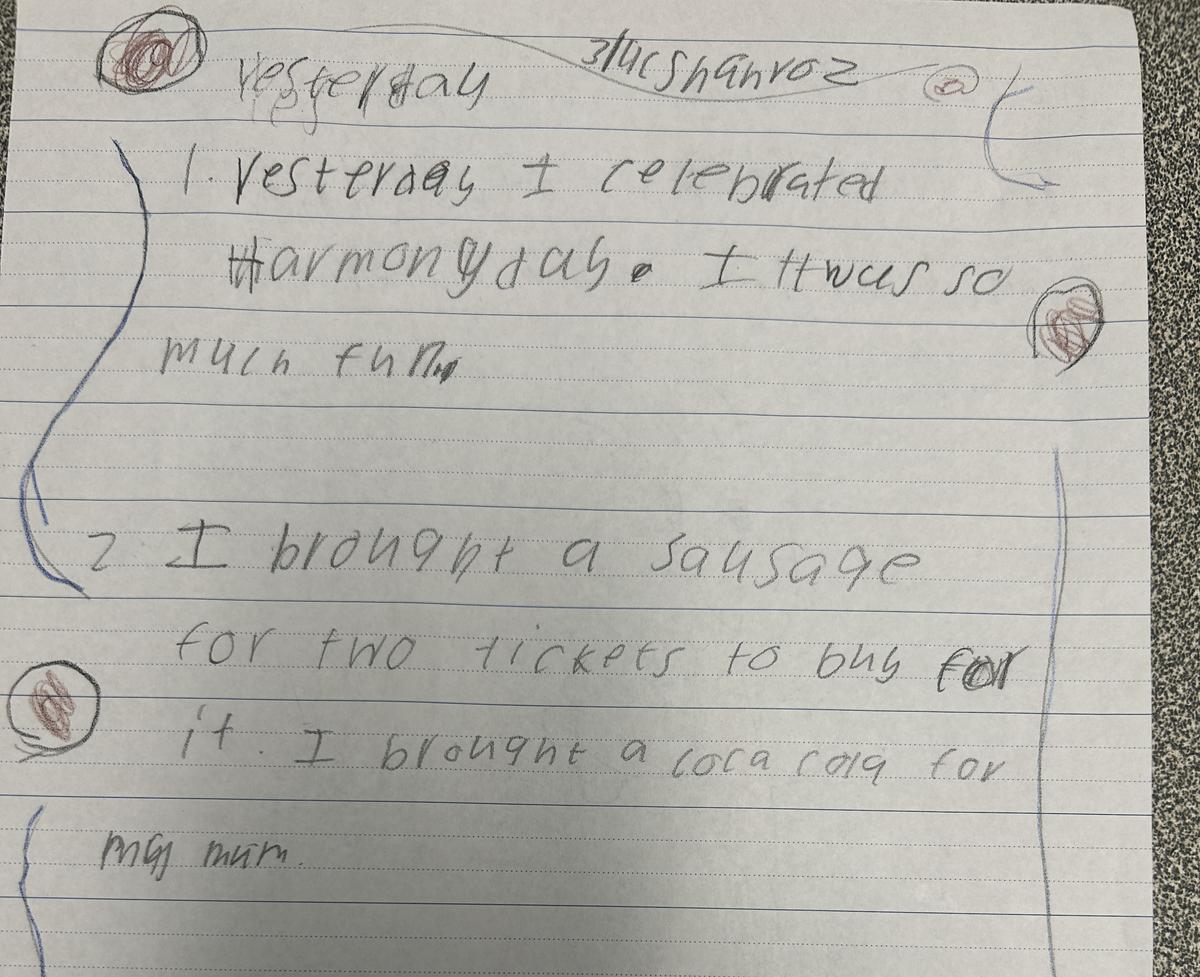 Yesterday 3/4C Shahroz
1. Yesterday I celebrated
Harmony day. I It was so
much fun.
2 I brought a sausage
for two tickets to buy for
it. I brought a coca cola for
my mum.